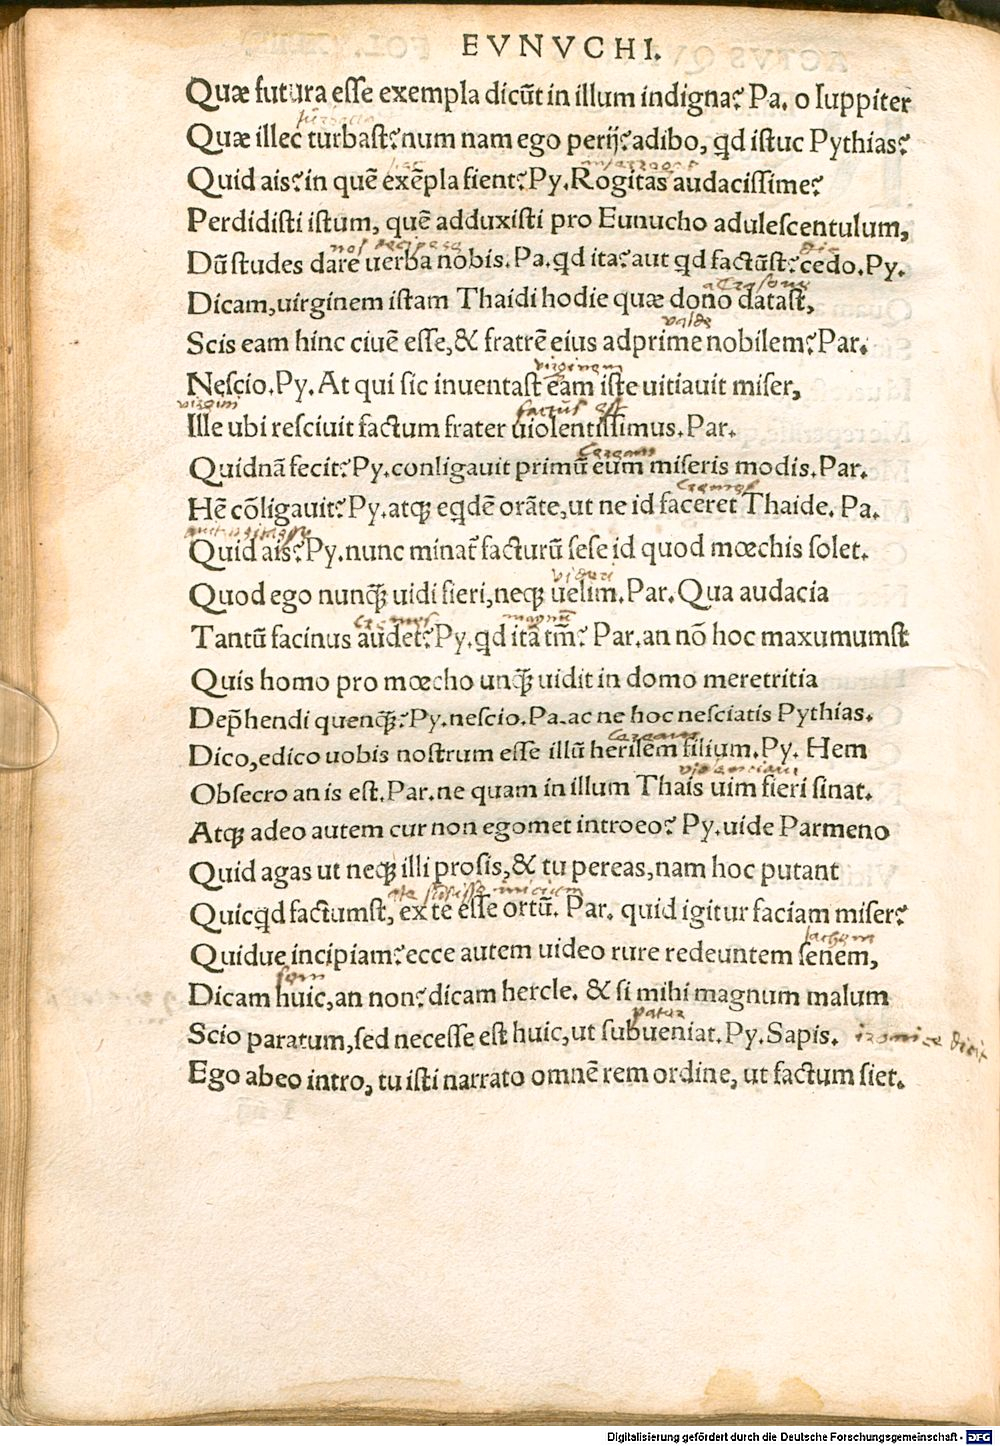 EVNVCHI.
Quæ futura esse exempla dicũt in illum indigna? Pa. o Iuppiter
Quæ illec turbast? num nam ego perij? adibo, qd istuc Pythias?
Quid ais? in quẽ exẽpla fient? Py. Rogitas audacissime?
Perdidisti istum, quẽ adduxisti pro Eunucho adulescentulum,
nos decipere dic
Dũ studes dare uerba nobis. Pa. qd ita? aut qd factũst? cedo. Py.
a Trasone
Dicam, uirginem istam Thaidi hodie quæ dono datast,
valde
Scis eam hinc ciuẽ esse, & fratrẽ eius adprime nobilem? Par.
virginem
Nescio. Py. At qui sic inuentast eam iste uitiauit miser,
virginis factus est
Ille ubi resciuit factum frater uiolentissimus. Par.
Cream
Quidnã fecit? Py. conligauit primũ eum miseris modis. Par.
Cremes
Hẽ cõligauit? Py. atq; eqdẽ orãte, ut ne id faceret Thaide. Pa.
Quid ais? Py. nunc minat̃ facturũ sese id quod mœchis solet.
videri
Quod ego nunq̃ uidi fieri, neq; uelim. Par. Qua audacia
Cremes magnũ
Tantũ facinus audet? Py. qd ita tm̃? Par. an nõ hoc maxumumst
Quis homo pro mœcho unq̃ uidit in domo meretritia
Dep̃hendi quenq̃? Py. nescio. Pa. ac ne hoc nesciatis Pythias.
Dico, edico uobis nostrum esse illũ herilem filium. Py. Hem
violenciam
Obsecro an is est. Par. ne quam in illum Thais uim fieri sinat.
Atq; adeo autem cur non egomet introeo? Py. uide Parmeno
Quid agas ut neq; illi prosis, & tu pereas, nam hoc putant
te fuisse inicium
Quicqd factumst, ex te esse ortũ. Par. quid igitur faciam miser?
lachem
Quidue incipiam? ecce autem uideo rure redeuntem senem,
seni
Dicam huic, an non? dicam hercle. & si mihi magnum malum
pater
Scio paratum, sed necesse est huic, ut subueniat. Py. Sapis. ironice dicit
Ego abeo intro, tu isti narrato omnẽ rem ordine, ut factum siet.
Digitalisierung gefördert durch die Deutsche Forschungsgemeinschaft - DFG